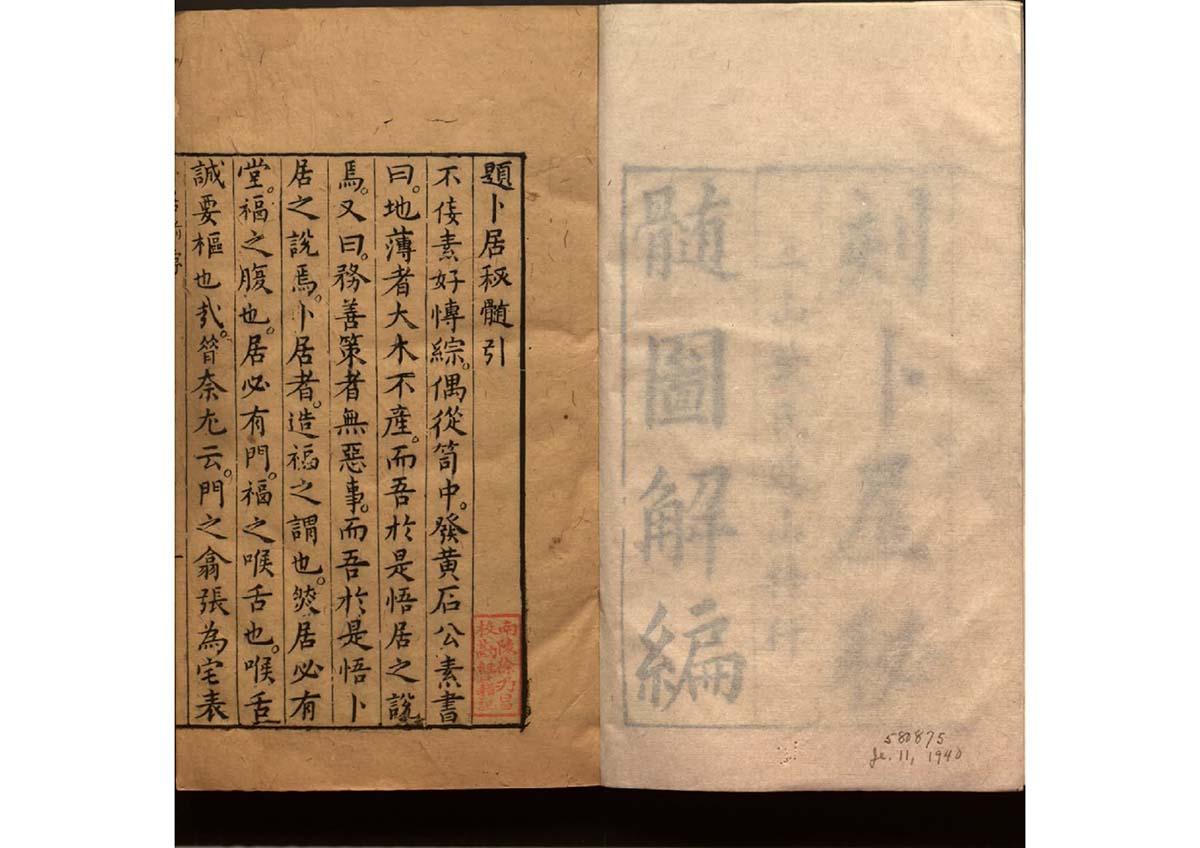 刻卜居秘
髓圖解編
580875
Je. 11, 1940
題卜居秘髓引
不佞素好愽綜。偶從笥中。發黄石公素書
曰。地薄者大木不產。而吾於是悟居之說
焉。又曰。務善策者無惡事。而吾於是悟卜
居之說焉。卜居者。造福之謂也。然居必有
堂。福之腹也。居必有門。福之喉舌也。喉舌
誠要樞也哉。昝奈尤云。門之翕張為宅表
南陵徐乃昌
校勘經籍記